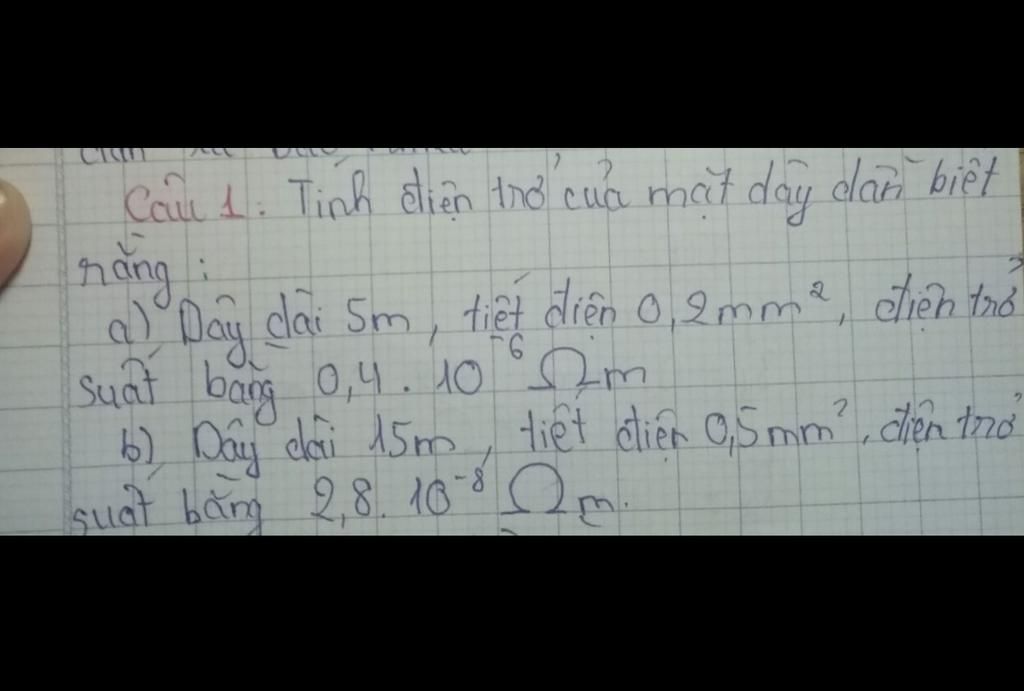 Câu 1. Tính điện trở của một dây dẫn biết
rằng :
a) Dây dài 5m, tiết diện 0,2mm², điện trở
suất bằng 0,4 . 10⁻⁶ Ωm
b) Dây dài 15m, tiết diện 0,5mm², điện trở
suất bằng 2,8. 10⁻⁸ Ωm.